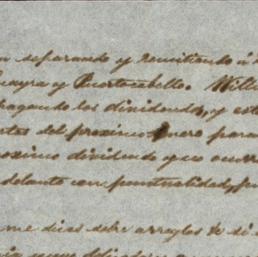 n separando y remitiendo á
Guayra y Puertocabello. Will
pagando los dividendos, y est
tes del proximo Enero para
roximo dividendo que ocurr
delante con puntualidad, p
me dias sobre arreglos de si